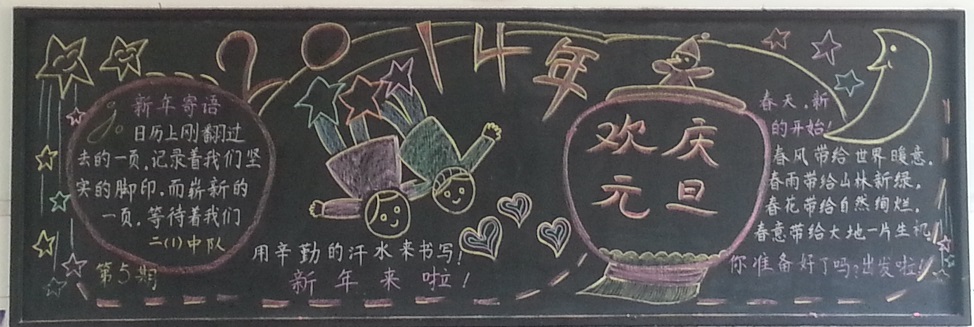 2014年
新年寄语
日历上刚翻过
去的一页,记录着我们坚
实的脚印,而崭新的
一页,等待着我们
二(1)中队
第5期
用辛勤的汗水来书写!
新年来啦!
欢庆
元旦
春天,新
的开始!
春风带给世界暖意,
春雨带给山林新绿,
春花带给自然绚烂,
春意带给大地一片生机,
你准备好了吗?出发啦!